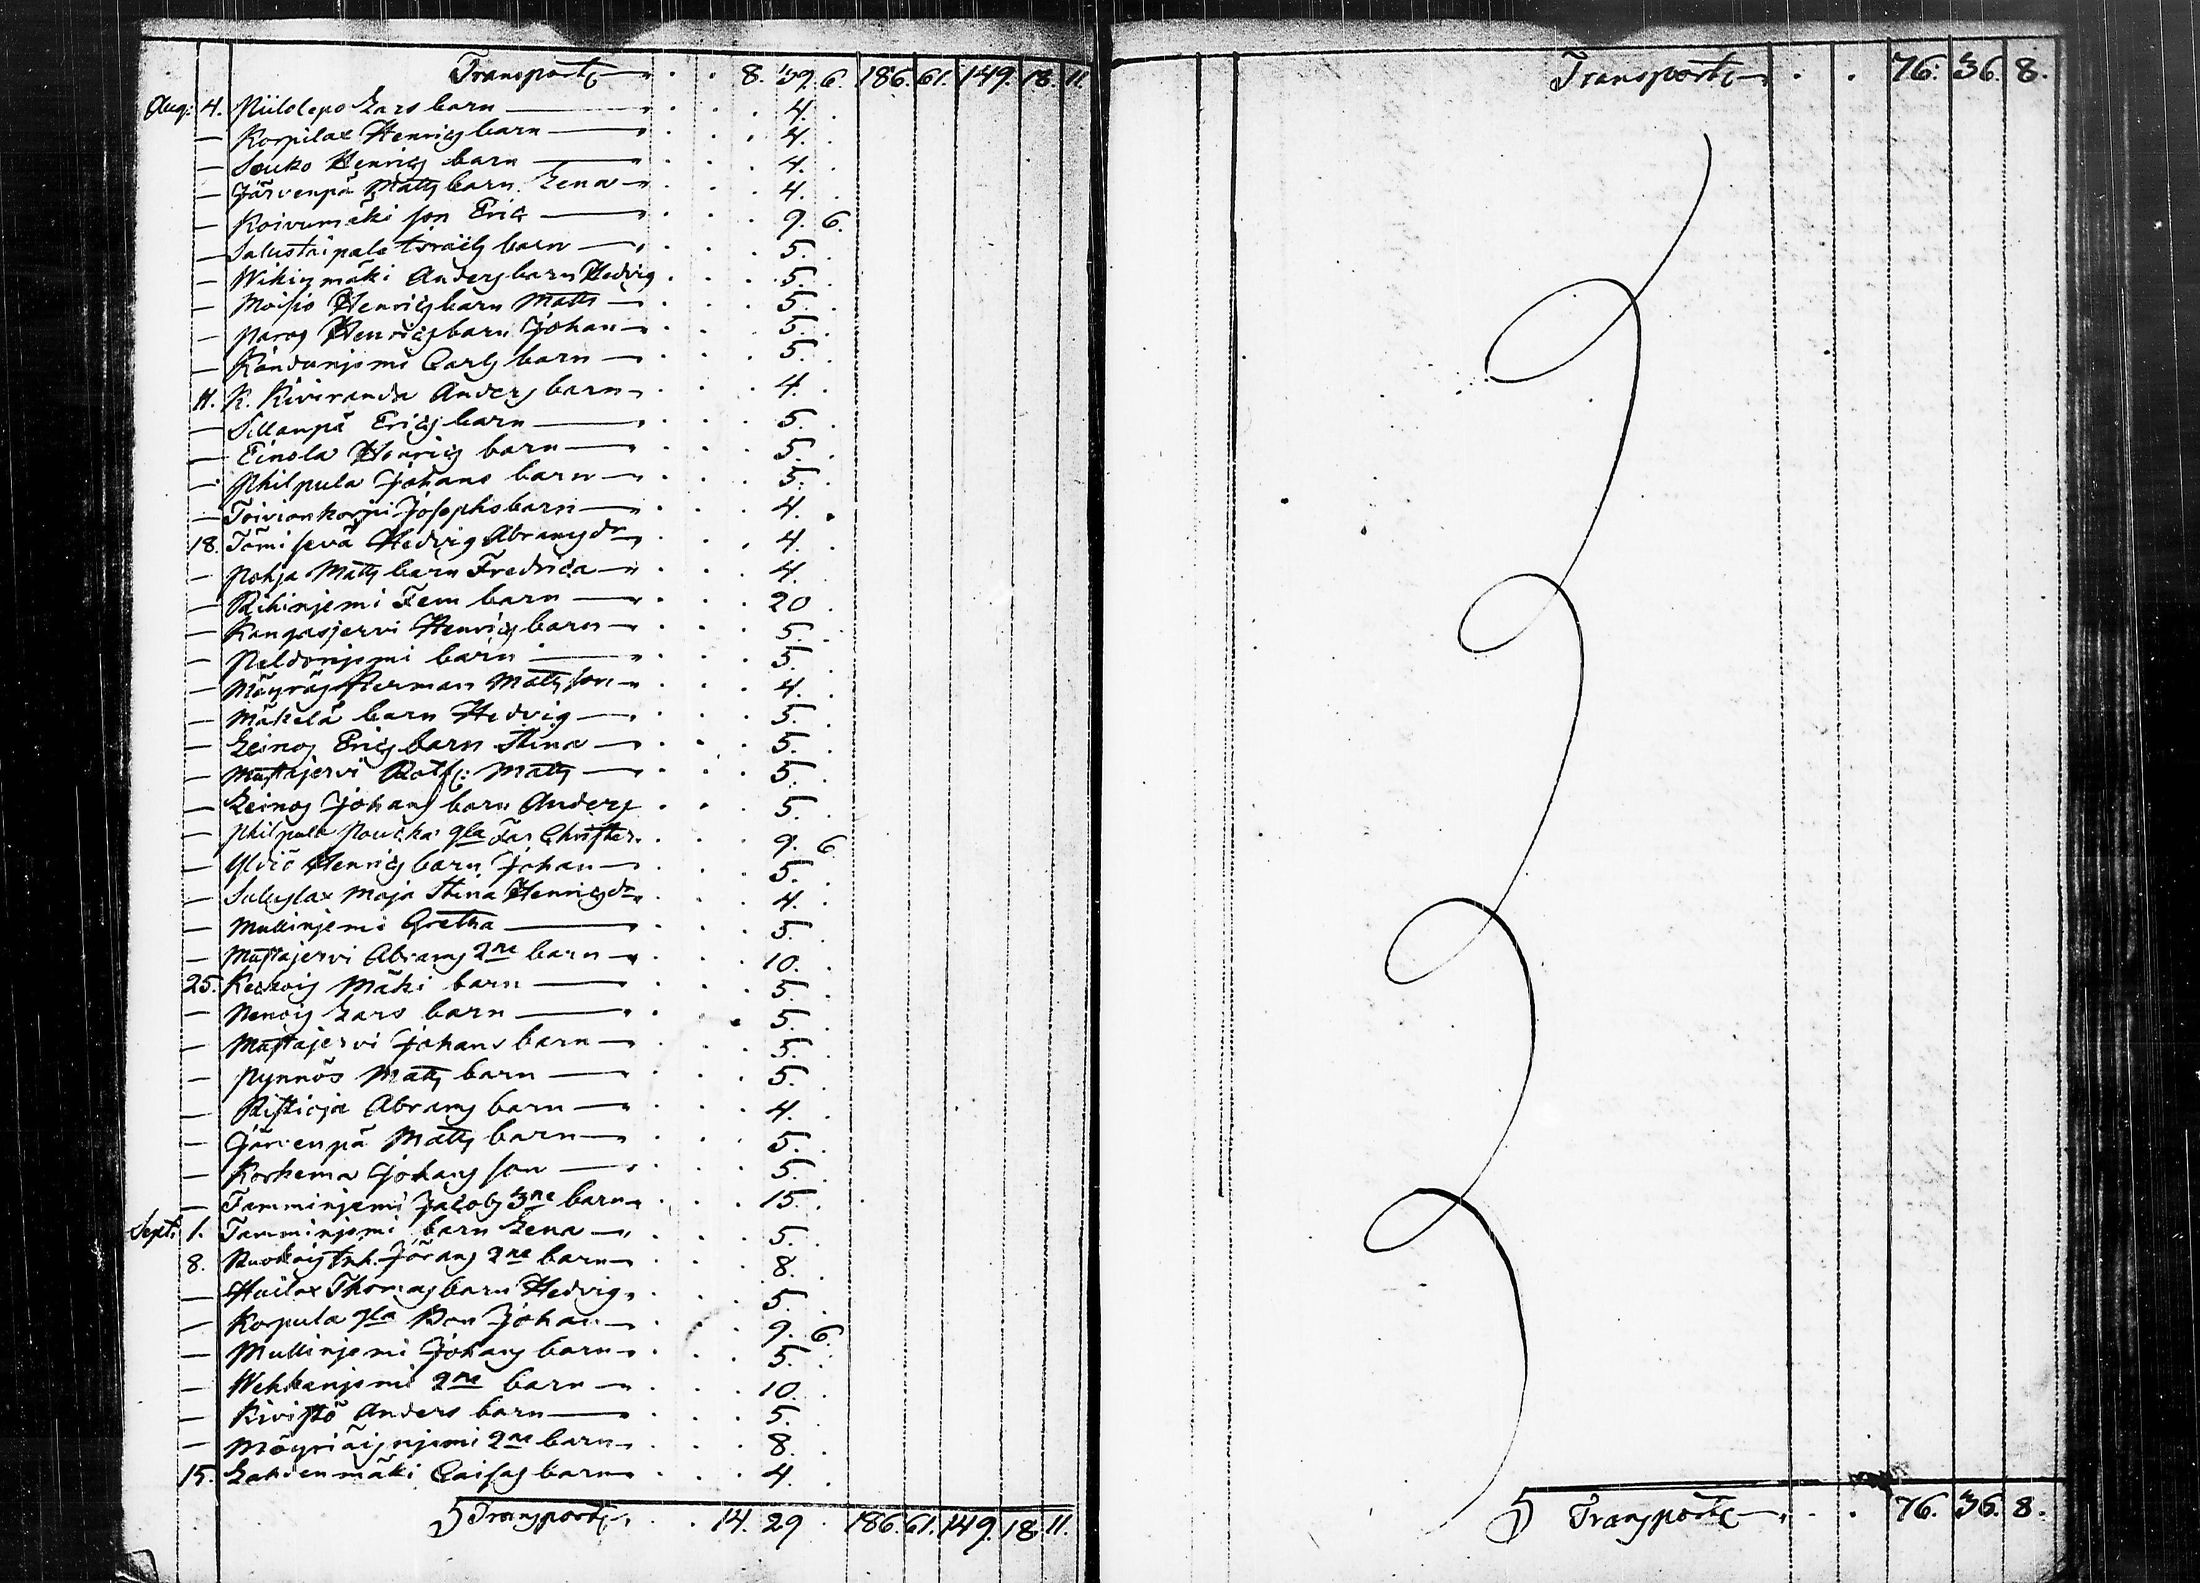 Transport 8. 39. 6. 186. 61. 149. 18. 11.
Aug: 4. Niilolepo Lars barn 4.
— Korpilax Henrics barn 4.
— Souko Henrics barn 4.
— Järvenpä Matts barn Lena 4.
— Koivumäki son Eric 9. 6.
— Salustaipale Israels barn 5.
— Wikinmäki Anders barn Hedvig 5.
— Moisio Henrics barn Matts 5.
— Paros Henrics barn Johan 5.
— Kändänjemi Carls barn 5.
11. K. Kiviranda Anders barn 4.
— Sillanpä Erics barn 5.
— Einola Henrics barn 5.
— Philpula Johans barn 5.
— Toiviankorpi Josephs barn 4.
18. Tömisevä Hedvig Abramsdr 4.
— Pohja Matts barn Fredrica 4.
— Rihinjemi Fem barn 20
— Kangasjervi Henrics barn 5.
— Peldonjemi barn 5.
— Mäyräs Herman Matts son 4.
— Mäkelä barn Hedvig 5.
— Leinos Erics barn Stina 5.
— Mustajervi Matts 5.
— Leinos Johans barn Anders 5.
— Philpula gla Far Christer 9. 6
— Ylviö Henrics barn Johan 5.
— Maja Stina Henricsdr 4.
— Mullinjemi Gretha 5.
— Mustajervi Abrams 2ne barn 10.
25. Mäki barn 5.
— Lars barn 5.
— Mustajervi Johans barn 5.
— Pynnös Matts barn 5.
— Ristioja Abrams barn 4.
— Järvenpä Matts barn 5.
— Korhema Johans son 5.
— Tamminjemi Jacobs 3ne barn 15.
Sept: 1. Tamminjemi barn Lena 5.
8. Jörans 2ne barn 8.
— Thomas barn Hedvig 5.
— Korpula gla Bon Johan 9. 6.
— Mullinjemi Johans barn 5.
— Wehkanjemi 2ne barn 10.
— Kivistö Anders barn 5.
— 2ne barn 8.
15. Lahdenmäki Caisas barn 4.
Transport 14. 29 186. 61. 149. 18. 11.
Transport 76. 36. 8.
Transport 76. 36. 8.